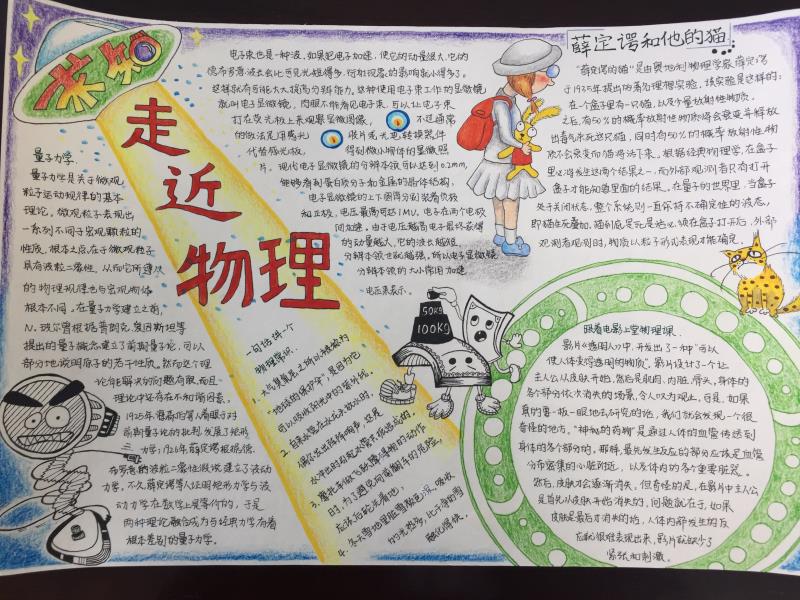 未知
走近物理
量子力学
量子力学是关于微观
粒子运动规律的基本
理论。微观粒子表现出
一系列不同于宏观颗粒的
性质,根本之点在于微观粒子
具有波粒二象性,从而它所遵从
的物理规律也与宏观物体
根本不同。在量子力学建立之前,
N.玻尔曾根据普朗克、爱因斯坦等
提出的量子概念建立了前期量子论,可以
部分地说明原子的若干性质。然而这个理
论能解决的问题有限,而且
理论中还存在不和谐因素。
1925年海森伯等人着眼于对
前期量子论的批判,发展了矩形
力学;1926年薛定谔根据德
布罗意的波粒二象性假说建立了波动
力学。不久薛定谔等人证明矩形力学与波
动力学在数学上是等价的,于是
两种理论融合成为与经典力学有着
根本差别的量子力学。
电子束也是一种波,如果把电子加速,使它的动量很大,它的
德布罗意波长就比可见光短得多,衍射现象的影响就小得多了。
这样就有可能大大提高分辨能力。这种使用电子束工作的显微镜
就叫电子显微镜,肉眼不能看见电子束,可以让电子束
打在荧光板上来观察显微图像,不过通常
的做法是用感光胶片或光电转换器件
代替感光板,得到微小物体的显微照
片。现代电子显微镜的分辨本领可以达到0.2mm,
能够看到蛋白质分子和金属的晶体结构,
电子显微镜的上下圆筒分别装着负极
和正极,电压最高可达1MU,电子在两个电极
间加速。由于电压越高电子最终获得
的动量越大,它的波长越短,
分辨本领也就越强,所以电子显微镜
分辨本领的大小常用加速
电压来表示。
薛定谔和他的猫
“薛定谔的猫”是由奥地利物理学家薛定谔
于1935年提出的著名理想实验。该实验是这样的:
在个盒子里有一只猫,以及少量放射性物质。
之后,有50%的概率放射性物质将会衰变并释放
出毒气杀死这只猫,同时有50%的概率放射性物
质不会衰变而猫将活下来。根据经典物理学,在盒子
里必将发生这两个结果之一,而外部观测者只有打开
盒子才能知道里面的结果。在量子的世界里,当盒子
处于关闭状态,整个系统则一直保持不确定性的波态,
即猫生死叠加。猫到底是死是活必须在盒子打开后,外部
观测者观测时,物质以粒子形式表现才能确定。
一句话讲一个
物理常识
1. 大气臭氧层之所以被称为
地球的保护伞,是因为它
可以吸收阳光中的紫外线。
2. 自来水管在放水时,
偶尔发出阵阵响声,这是
水冲出时引起水管共振造成的。
3. 在雪地里脏雪融化
50KG
100KG
跟着电影上堂物理课
影片《透明人》中,开发出了一种“可以
使人体变得透明的物质”。影片设计了个让
主人公从皮肤开始,然后是肌肉、内脏、骨头,身体的
各个部分依次消失的场景,令人叹为观止。可是,如果
真的要一板一眼地去研究的话,我们就会发现一个很
奇怪的地方。“神秘的药物”是通过人体的血管传送到
身体的各个部分的。那样,最先发生反应的部分应该是血管
分布密集的心脏附近,以及体内的各个重要脏器。
然后,皮肤才会逐渐消失。但奇怪的是,在影片中主人公
是首先从皮肤开始消失的。问题就在于,如果
皮肤是最后才消失的话,人体内部发生的反
应就很难表现出来,影片就缺少了
紧张和刺激。